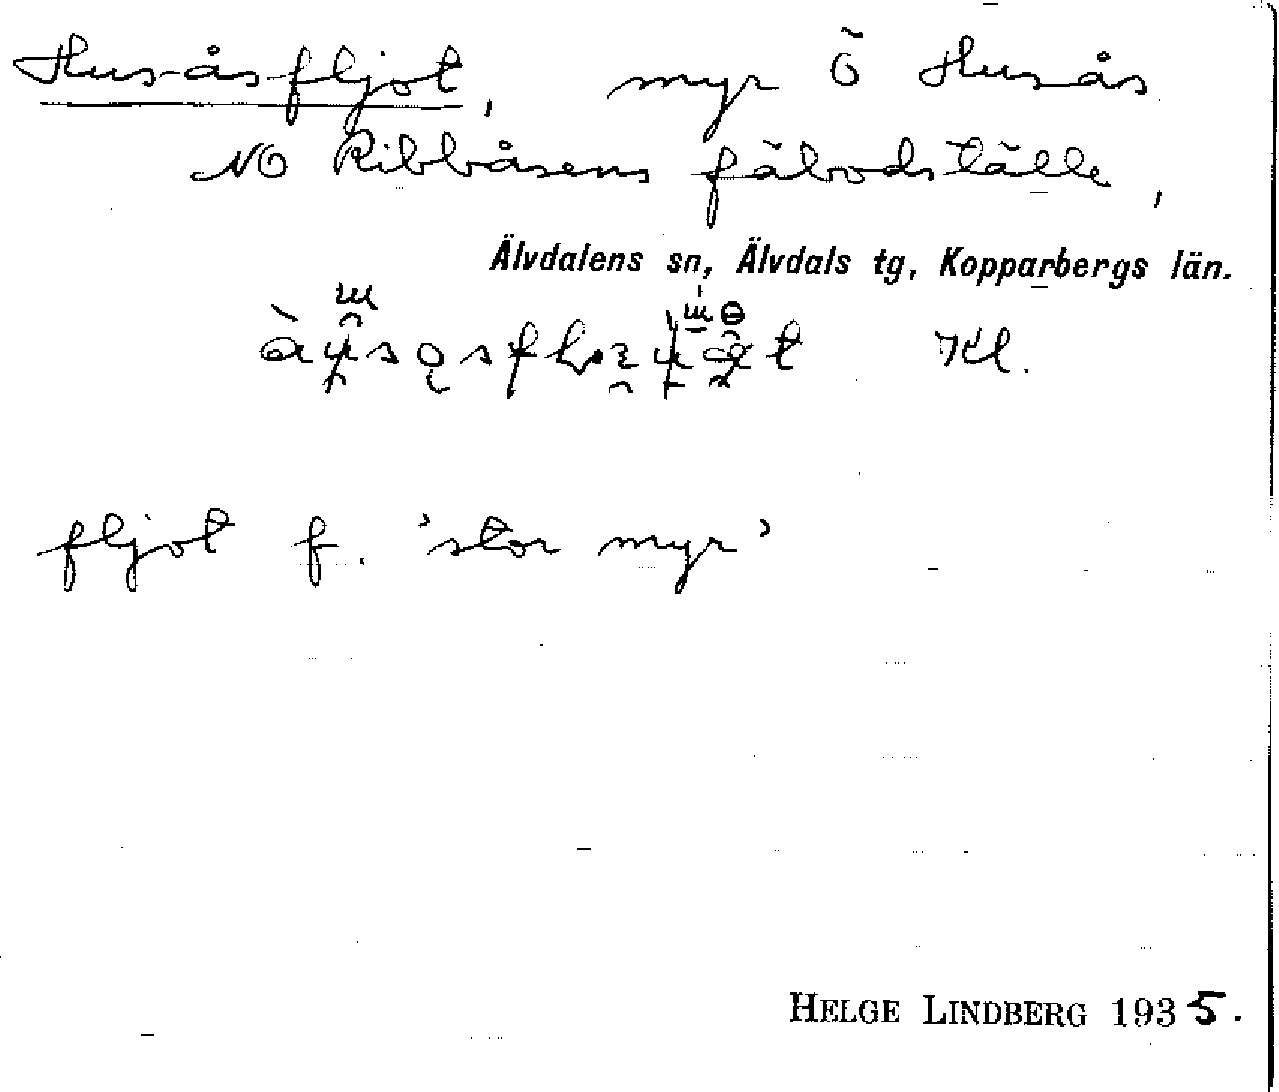 Husåsfljot, myr Ö Husås
NO Ribbåsens fäbodställe,
Älvdalens sn, Älvdals tg, Kopparbergs län.
Kl.
fljot f. 'stor myr'
HELGE LINDBERG 1935.